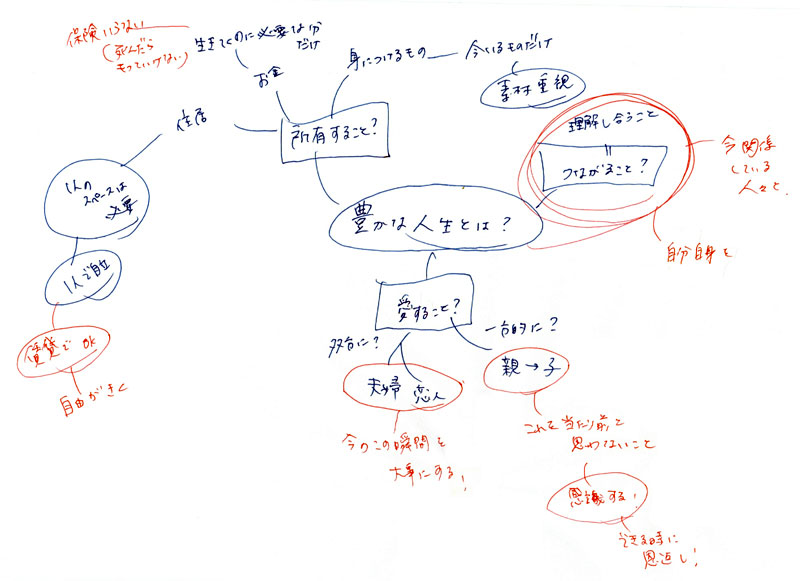 保険いらない
(死んだら
もっていけない)
生きてくのに必要な分
だけ
お金
身につけるもの
今いるものだけ
素材重視
住居
所有すること?
理解し合うこと
||
つながること?
今関係
している
人々と
自分自身と
1人の
スペースは
必要
豊かな人生とは?
1人で自立
賃貸でOK
自由がきく
愛すること?
双方に?
一方的に?
夫婦
恋人
親→子
今のこの瞬間を
大事にする!
これを当たり前と
思わないこと
感謝する!
できる時に
恩返し!